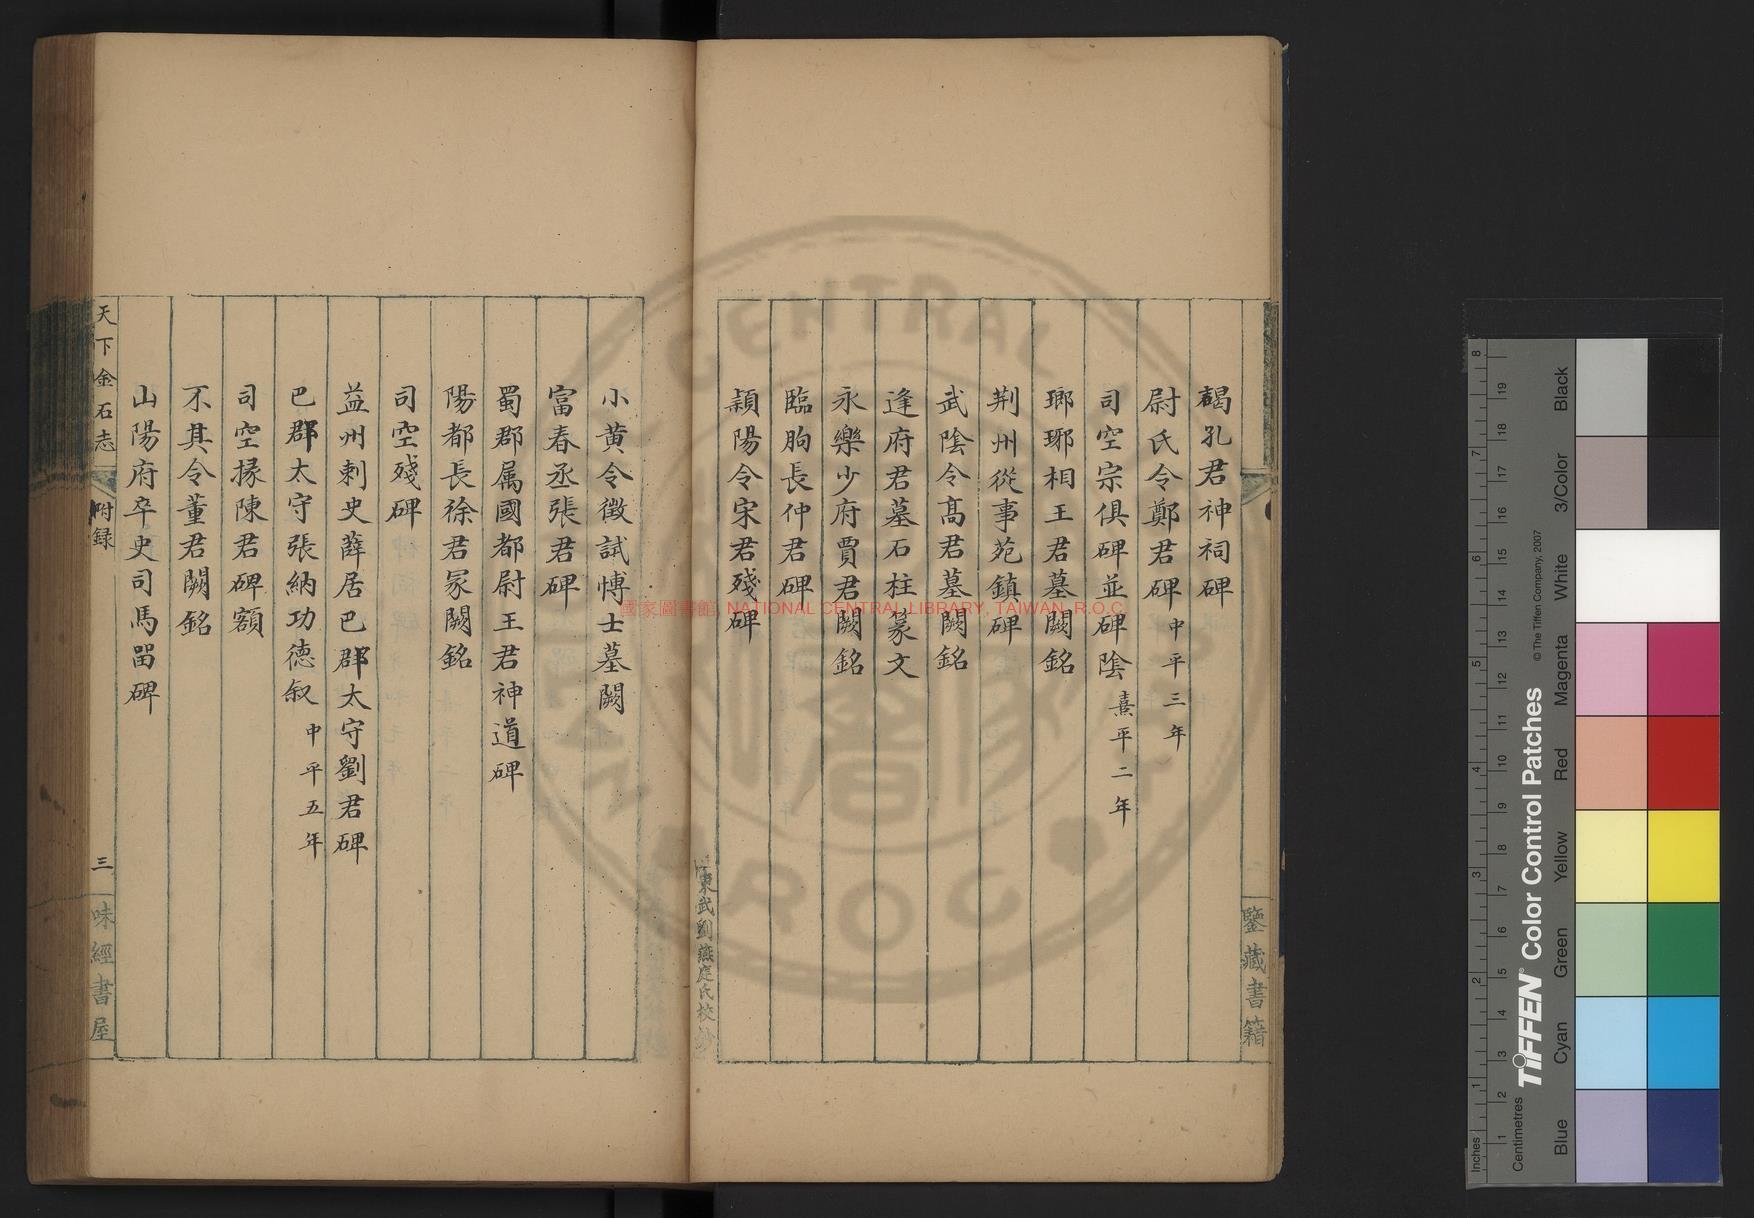 謁孔君神祠碑
尉氏令鄭君碑 中平三年
司空宗俱碑並碑陰 熹平二年
瑯琊相王君墓闕銘
荆州從事苑鎮碑
武陰令髙君墓闕銘
逢府君墓石柱篆文
永樂少府賈君闕銘
臨朐長仲君碑
潁陽令宋君殘碑
鑒藏書籍
東武劉燕庭氏校鈔
小黄令徵試愽士墓闕
富春丞張君碑
蜀郡属國都尉王君神道碑
陽都長徐君冢闕銘
司空殘碑
益州刺史薛君巴郡太守劉君碑
巴郡太守張納功徳叙 中平五年
司空掾陳君碑額
不其令董君闕銘
山陽府卒史司馬畱碑
天下金石志 附録 三 味經書屋
國家圖書館, NATIONAL CENTRAL LIBRARY, TAIWAN, R.O.C.
CENTRAL
R.O.C.
TIFFEN® Color Control Patches
© The Tiffen Company, 2007
Centimetres
Inches
Blue
Cyan
Green
Yellow
Red
Magenta
White
3/Color
Black